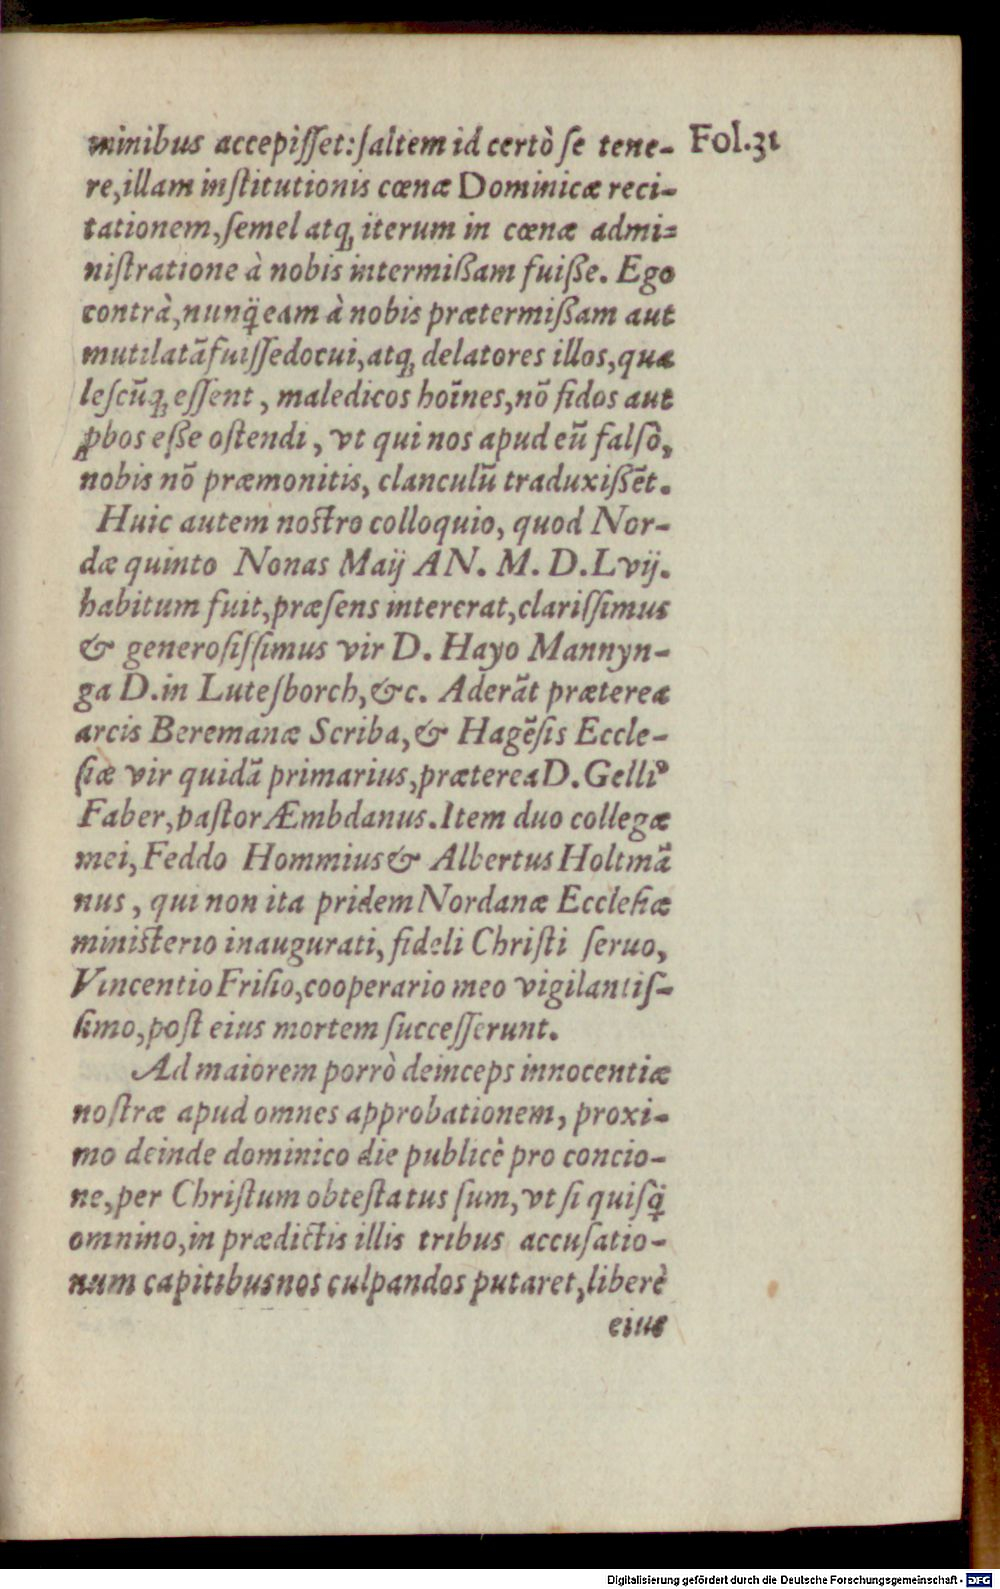 minibus accepiſſet: ſaltem id certò ſe tene- Fol.31
re, illam inſtitutionis cœnæ Dominicæ reci-
tationem, ſemel atq; iterum in cœnæ admi-
niſtratione à nobis intermißam fuiße. Ego
contrà, nunq̃ eam à nobis prætermißam aut
mutilatã fuiſſe docui, atq; delatores illos, qua
leſcũq; eſſent, maledicos hoĩnes, nõ fidos aut
ꝓbos eße oſtendi, vt qui nos apud eũ falſò,
nobis nõ præmonitis, clanculũ traduxißẽt.
Huic autem noſtro colloquio, quod Nor-
dæ quinto Nonas Maij AN. M. D. Lvij.
habitum fuit, præſens intererat, clariſſimus
& generoſiſſimus vir D. Hayo Mannyn-
ga D. in Luteſborch, &c. Aderãt præterea
arcis Beremanæ Scriba, & Hagẽſis Eccle-
ſiæ vir quidã primarius, præterea D. Gelliꝰ
Faber, paſtor Æmbdanus. Item duo collegæ
mei, Feddo Hommius & Albertus Holtmã
nus, qui non ita pridem Nordanæ Eccleſiæ
miniſterio inaugurati, fideli Chriſti ſeruo,
Vincentio Friſio, cooperario meo vigilantiſ-
ſimo, poſt eius mortem ſucceſſerunt.
Ad maiorem porrò deinceps innocentiæ
noſtræ apud omnes approbationem, proxi-
mo deinde dominico die publicè pro concio-
ne, per Chriſtum obteſtatus ſum, vt ſi quiſq̃
omnino, in prædictis illis tribus accuſatio-
num capitibus nos culpandos putaret, liberè
eius
Digitalisierung gefördert durch die Deutsche Forschungsgemeinschaft - DFG